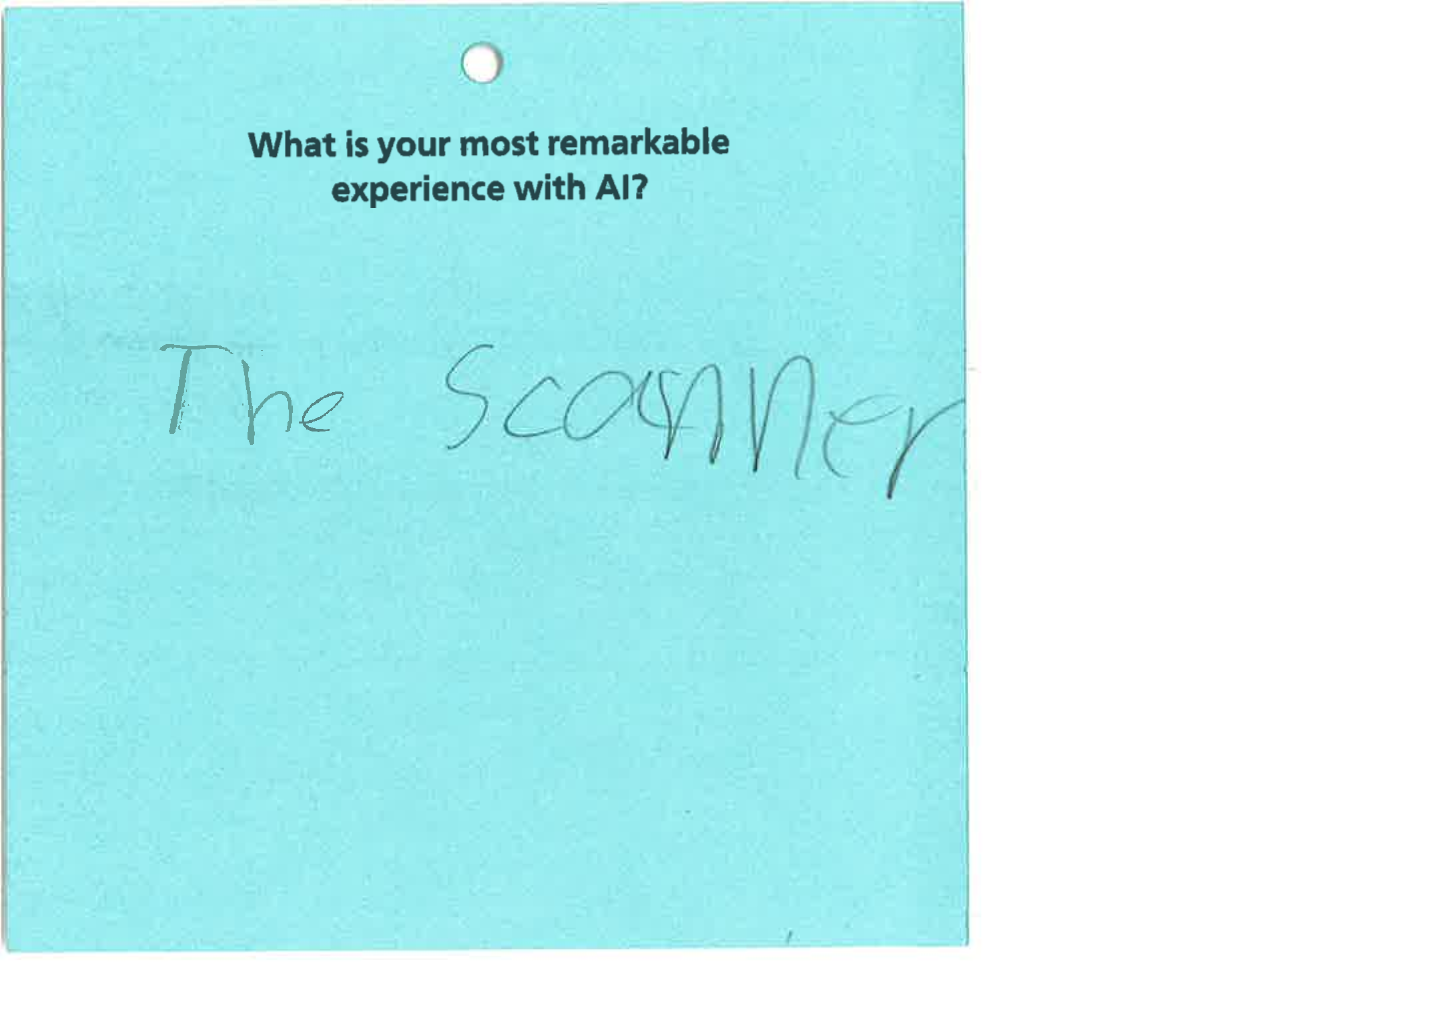 What is your most remarkable
experience with AI?
The Scanner